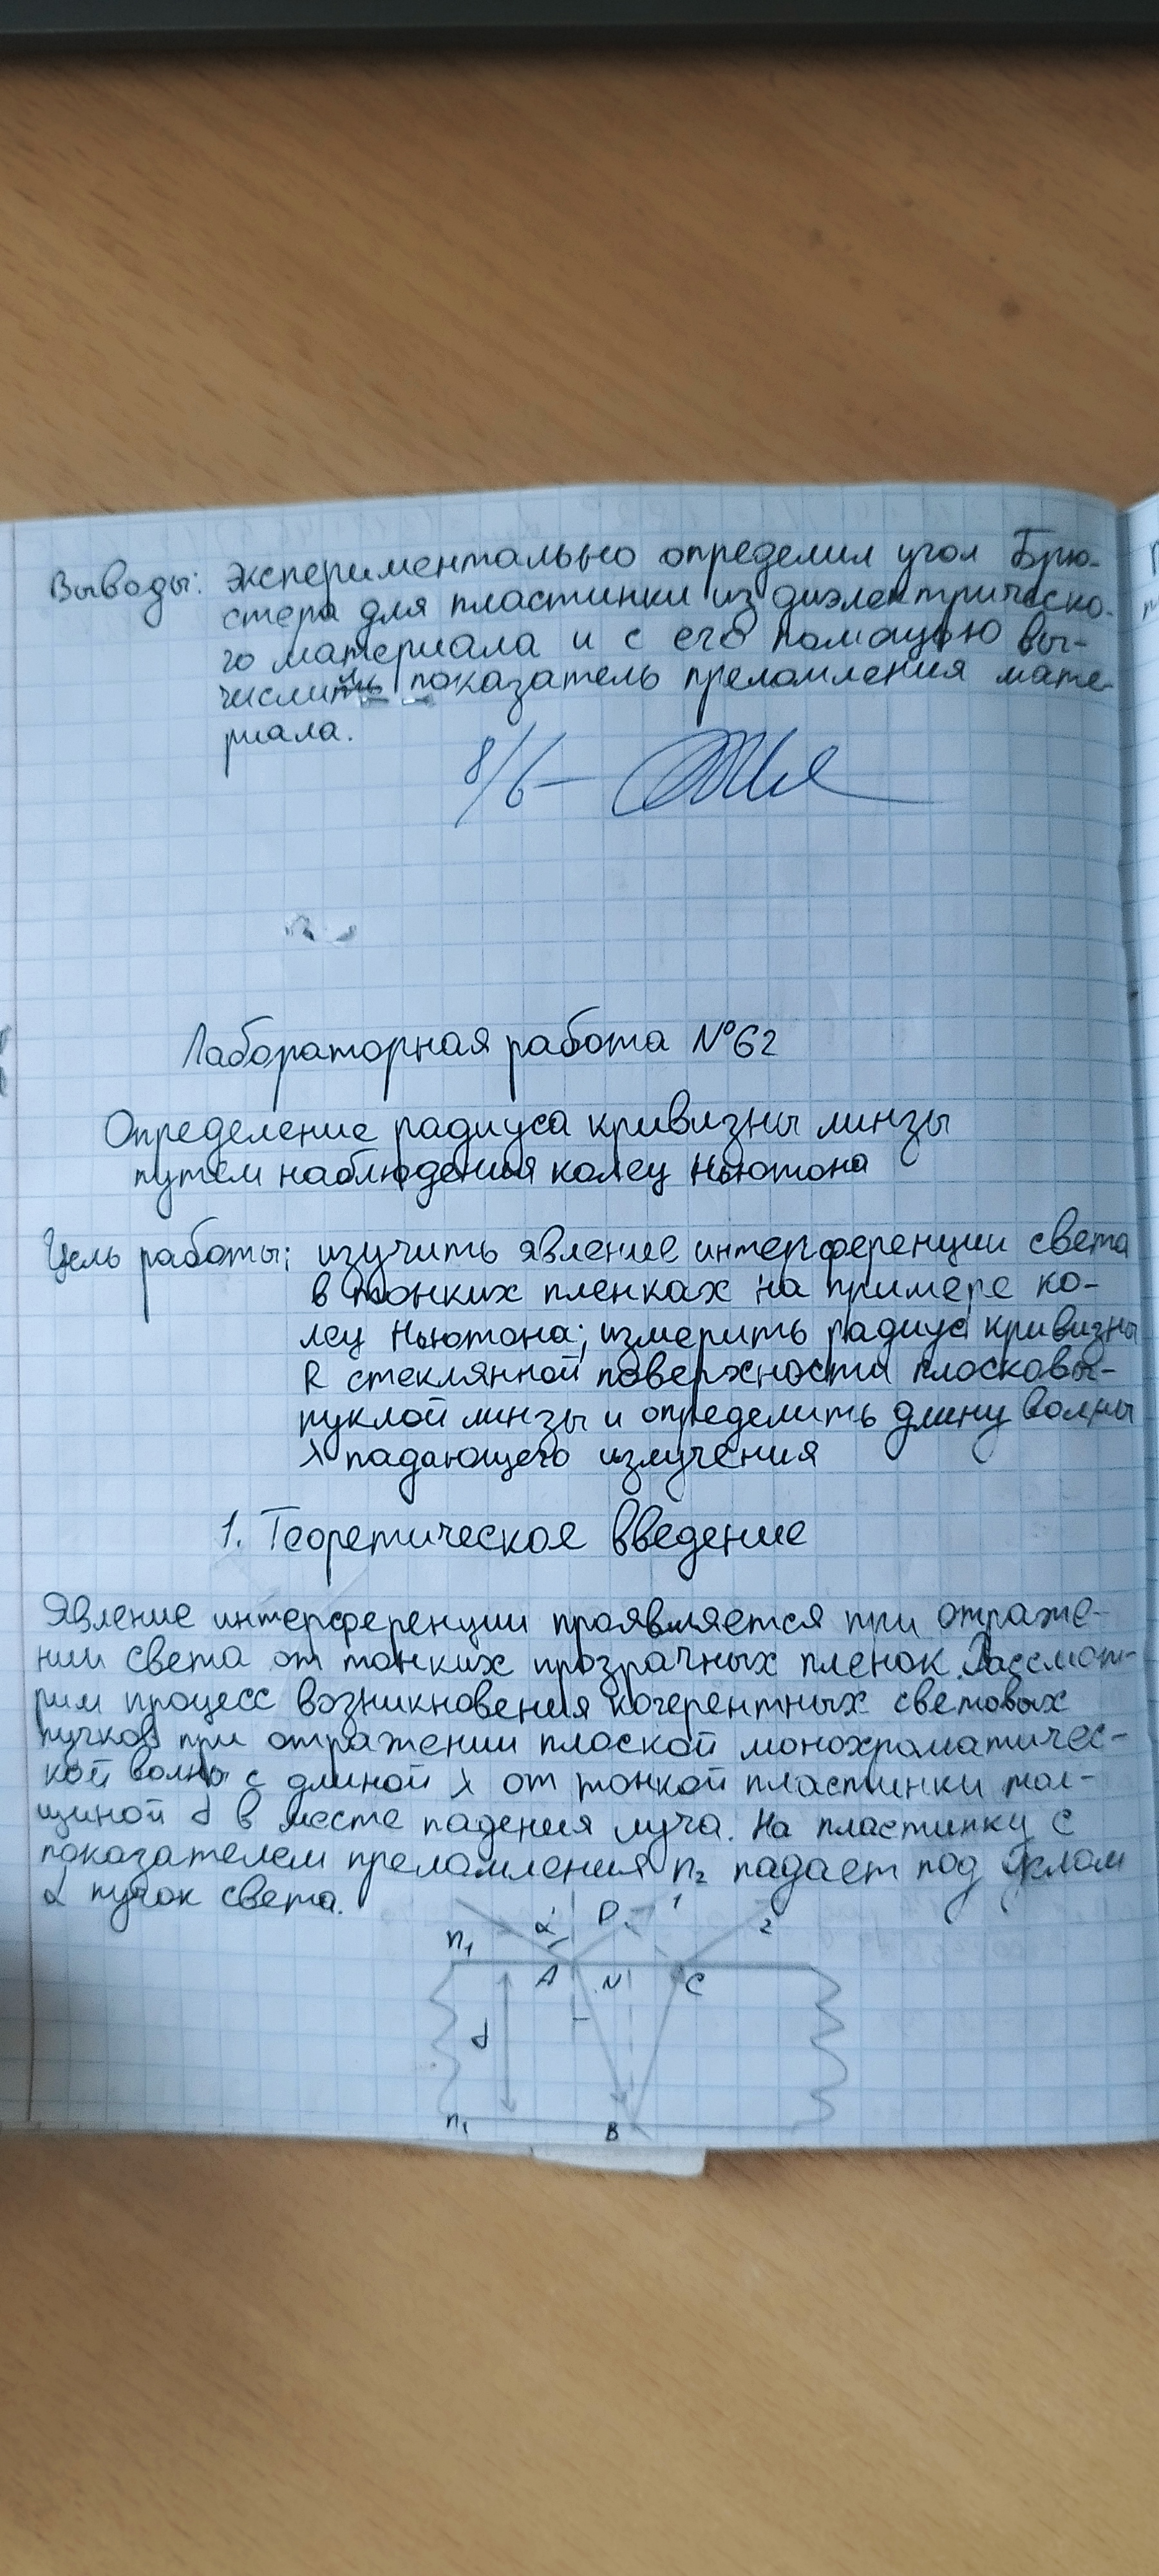 Выводы: экспериментально определил угол Брю-
стера для пластинки из диэлектрическо-
го материала и с его помощью вы-
числил показатель преломления мате-
риала.
Лабораторная работа №62
Определение радиуса кривизны линзы
путем наблюдения колец Ньютона
Цель работы: изучить явление интерференции света
в тонких пленках на примере ко-
лец Ньютона; измерить радиус кривизны
R стеклянной поверхности плосковы-
пуклой линзы и определить длину волны
λ падающего излучения
1. Теоретическое введение
Явление интерференции проявляется при отраже-
нии света от тонких прозрачных пленок. Рассмот-
рим процесс возникновения когерентных световых
пучков при отражении плоской монохроматичес-
кой волны с длиной λ от тонкой пластинки тол-
щиной d в месте падения луча. На пластинку с
показателем преломления n₂ падает под углом
α пучок света.
α D 1
n₁ 2
A N C
d
n₁ B